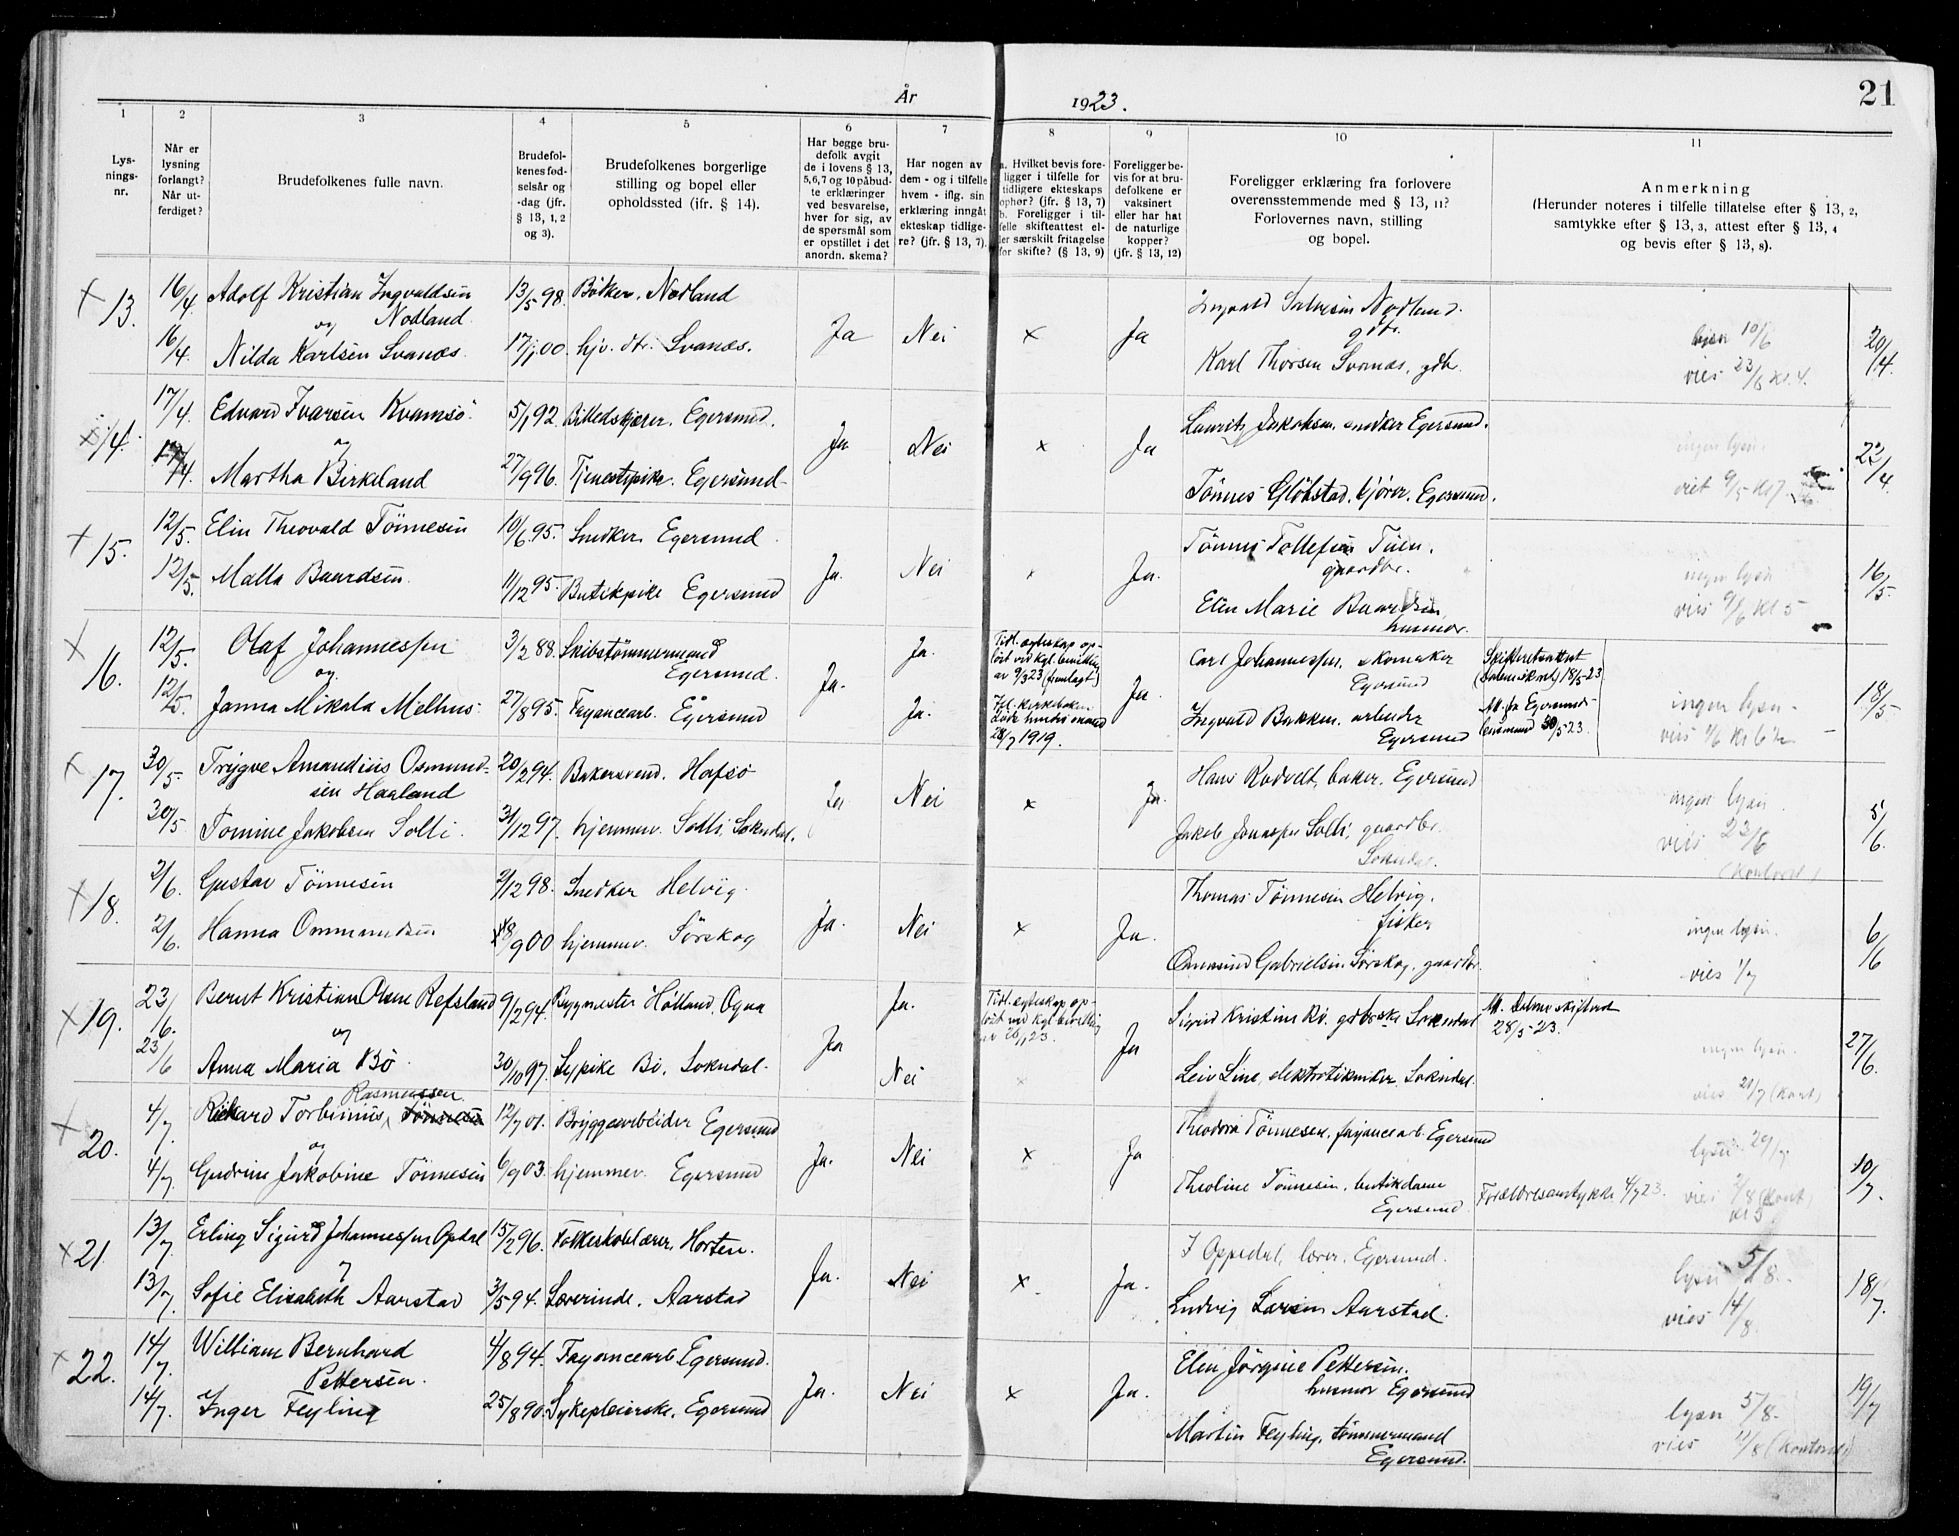 År 1923.
21
1 2 3 4 5 6 7 8 9 10 11
Lys-
nings-
nr.
Når er
lysning
forlangt?
Når ut-
ferdiget?
Brudefolkenes fulle navn.
Brudefol-
kenes fød-
selsår og
-dag (jfr.
§ 13, 1, 2
og 3).
Brudefolkenes borgerlige
stilling og bopel eller
opholdssted (ifr. § 14).
Har begge bru-
defolk avgit
de i lovens § 13,
5,6,7 og 10 påbud-
te erklæringer
ved besvarelse,
hver for sig, av
de spørsmål som
er opstillet i det
anordn. skema?
Har nogen av
dem - og i tilfelle
hvem - iflg. sin
erklæring inngåt
ekteskap tidlige-
re? (jfr. § 13, 7).
a. Hvilket bevis fore-
ligger i tilfelle for
tidligere ekteskaps
ophør? (jfr. § 13, 7)
b. Foreligger i til-
felle skifteattest el-
ler særskilt fritagelse
for skifte? (§ 13, 9)
Foreligger be-
vis for at bru-
defolkene er
vaksinert
eller har hat
de naturlige
kopper?
(jfr. § 13, 12)
Foreligger erklæring fra forlovere
overensstemmende med § 13, 11?
Forlovernes navn, stilling
og bopel.
Anmerkning
(Herunder noteres i tilfelle tillatelse efter § 13, 2,
samtykke efter § 13, 3, attest efter § 13, 4
og bevis efter § 13, 8).
x 13. 16/4. Adolf Kristian Ingvaldsen 13/5 98. Bøkker, Nodland
og Nodland
16/4. Nilda Karlsen Svanes 17/1 00. hjv. dtr. Svanes.
Ja Nei x Ja
Ingvald Salvesen Nodland.
gdbr.
Karl Thorsen Svanes, gdbr.
lysn 10/6
vies 23/6 kl. 4.
20/4.
x 14. 17/4. Edvard Ivarsen Kvamsö 5/1 92. Billedskjærer, Egersund.
og
17/4. Martha Birkeland 27/9 96. Tjenestepike. Egersund
Ja Nei x Ja
Lauritz Jakobsen, snedker Egersund.
Tönnes Glöbstad, kjører, Egersund.
ingen lysn.
viet 9/5 kl 7
22/4.
x 15. 12/5. Elin Theovald Tönnesen 10/6 95. Snedker Egersund
12/5. Malla Baardsen 11/12 95. Butikpike Egersund
Ja. Nei x Ja.
Tönnes Tollefsen Tuen.
gaardbr.
Elen Marie Baardsen
husmor.
ingen lysn
vies 9/6 kl 5
16/5.
x 16. 12/5. Olaf Johannessen 3/2 88. Skibstømmermand
og. Egersund.
12/5. Janna Mikala Melhus 27/8 95. Fayancearb. Egersund
Ja. Ja. Ja. Ja.
Tidl. egteskap op-
löst ved kgl. bevilling
av 9/3 23 (fremlagt)
28/7 1919.
Carl Johannessen, skomaker
Egersund
Ingvald Bakken, arbeider
Egersund
Skifteretsattest
(Dalene skret) 18/5-23
Att. fra Egersunds
lensmand 30/5 23.
ingen lysn
18/5
x 17. 30/5. Trygve Amandius Osmund- 20/2 94. Bakersvend. Hafsö
sen Haaland
30/5. Tomine Jakobsen Solli. 31/12 97. hjemmev. Solli, Sokndal.
Ja Nei x Ja.
Hans Rodvelt, baker, Egersund
Jakob Jonassen Solli, gaardbr.
Sokndal.
ingen lysn.
vies 23/6
5/6.
x 18. 2/6. Gustav Tönnesen 2/12 98. Snedker Helvig.
2/6. Hanna Ommundsen 18/9 00 hjemmev. Sörskog
Ja. Nei x Ja.
Thomas Tönnesen Helvig.
fisker
Ommund Gabrielsen Sörskog, gaardbr.
ingen lysn.
vies 1/7
6/6
x 19. 23/6. Bernt Kristian Olsen Refsland 9/2 94. Byggmester Hölland, Ogna
og
23/6 Anna Maria Bö. 30/10 97. Sypike Bö, Sokndal.
Ja Ja. Nei Ja
Tidl. egteskap op-
löst ved kgl. bevilling
Sigrid Kristine Bö, gdbrske Sokndal
Leiv Line, elektrotekniker, Sokndal.
Att. Dalene skifteret
28/5-23.
ingen lysn.
vies 21/7 (kont)
27/6.
x 20. 4/7. Rikard Torbinius, Rasmussen Tönnesen 12/7 01. Bryggearbeider Egersund
og
4/7. Gudrine Jakobine Tönnesen 6/9 03. hjemmev. Egersund
Ja. Nei x Ja
Theodora Tönnesen, fayancearb. Egersund
Theoline Tönnesen, butikdame
Egersund
Forældresamtykke 4/7 23.
lysn 29/7
10/7.
x 21. 13/7. Erling Sigurd Johannessen Opdal 15/2 96. Folkeskolelærer. Horten.
og
13/7. Sofie Elisabeth Aarstad 3/5 94. Lærerinde. Aarstad
Ja. Nei x Ja.
J Oppedal, lærer, Egersund.
Ludvig Larsen Aarstad.
lysn 5/8.
vies 14/8.
18/7.
x 22. 14/7. William Bernhard 4/8 94. Fayancearb Egersund.
Pettersen.
14/7. Inger Feyling 25/8 90. Sykepleierske, Egersund
Ja. Nei x Ja.
Elen Jörgine Pettersen.
husmor Egersund
Martin Feyling, tömmermand
Egersund.
lysn 5/8.
vies 11/8 (kontoret)
19/7